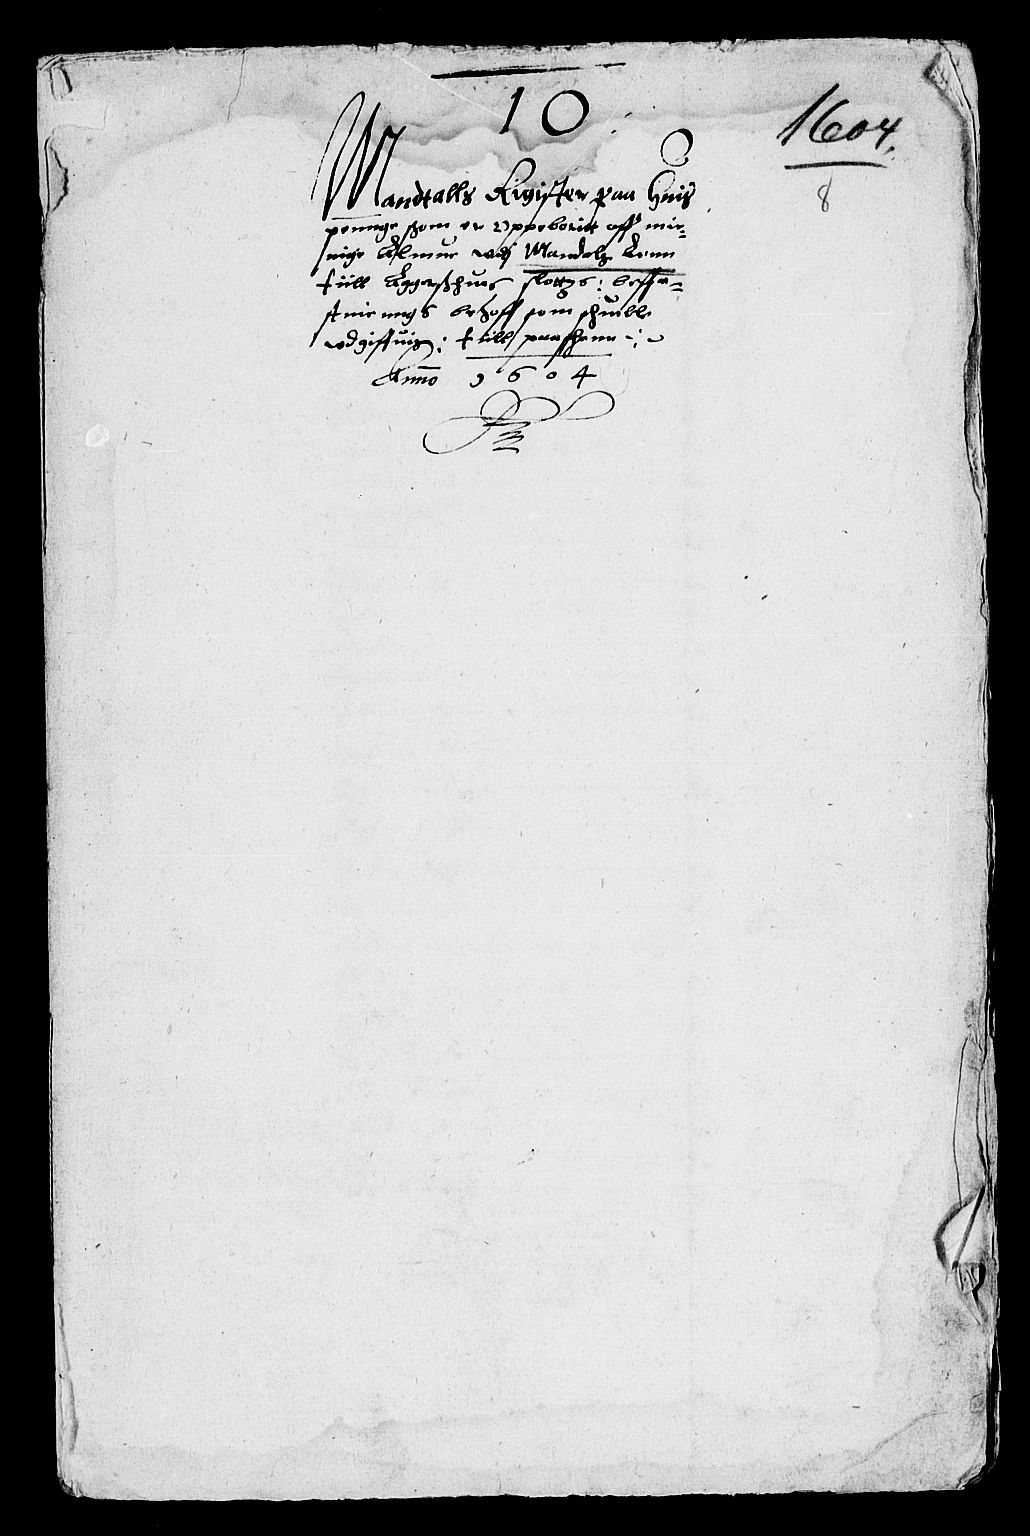 10
1604.
8
Mandtalls Register paa Huis
penninge som er Oppeboritt aff me-
nige Almue wdj Mandalz Lenn
till Aggershuus slottzs: beffe-
stnienngs behoff som schuelle
wdgiffuis: till paaschenn
Anno 1604